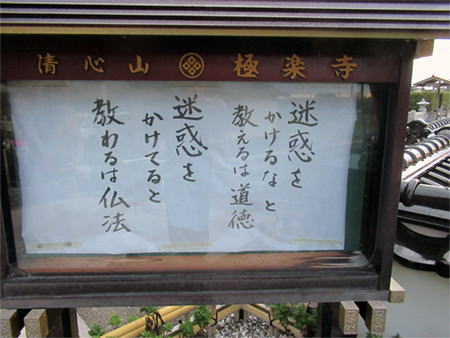 清心山 極楽寺
迷惑を
かけるなと
教えるは道徳
迷惑を
かけてると
教わるは仏法